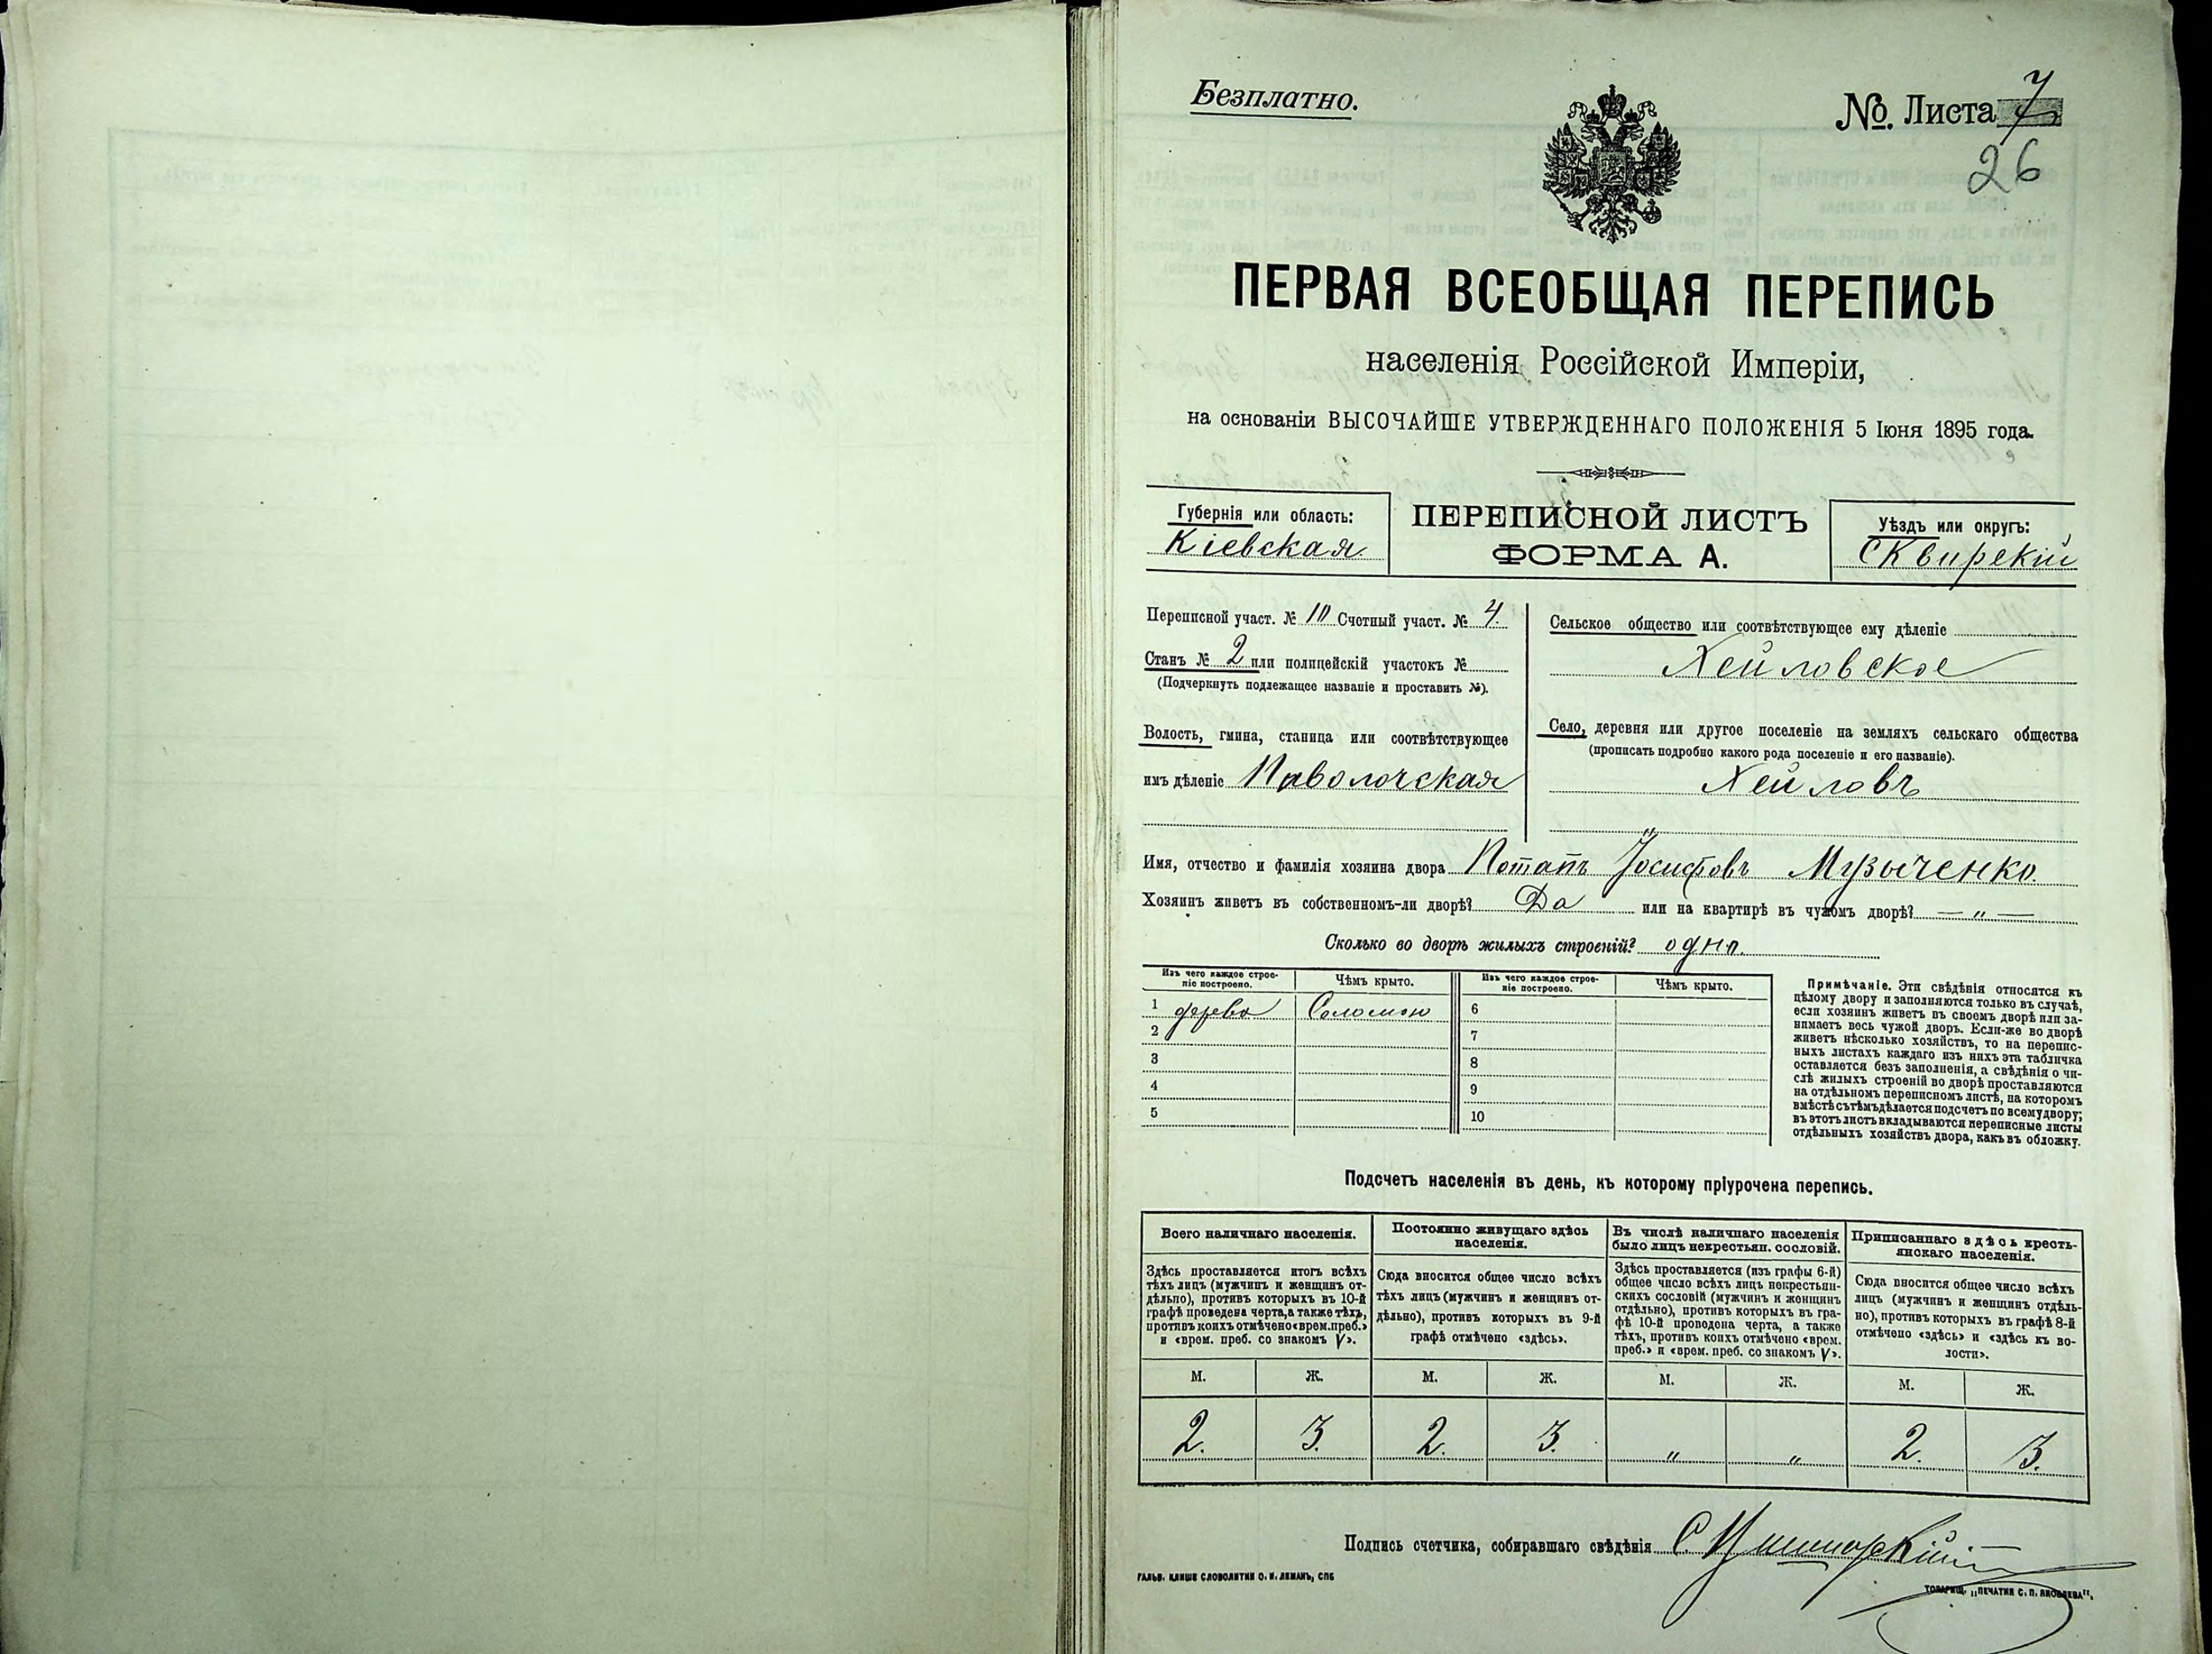 Безплатно.
№. Листа 7
26
ПЕРВАЯ ВСЕОБЩАЯ ПЕРЕПИСЬ
населенія Россійской Имперіи,
на основаніи ВЫСОЧАЙШЕ УТВЕРЖДЕННАГО ПОЛОЖЕНІЯ 5 Іюня 1895 года.
Губернія или область:
Кіевская
ПЕРЕПИСНОЙ ЛИСТЪ
ФОРМА А.
Уѣздъ или округъ:
Сквирскій
Переписной участ. № 10 Счетный участ. № 4.
Станъ № 2 или полицейскій участокъ №
(Подчеркнуть подлежащее названіе и проставить №).
Волость, гмина, станица или соотвѣтствующее
имъ дѣленіе Паволочская
Сельское общество или соотвѣтствующее ему дѣленіе
Хейловское
Село, деревня или другое поселеніе на земляхъ сельскаго общества
(прописать подробно какого рода поселеніе и его названіе).
Хейловъ
"
Имя, отчество и фамилія хозяина двора Потапъ Іосифовъ Музыченко.
Хозяинъ живетъ въ собственномъ-ли дворѣ? Да или на квартирѣ въ чужомъ дворѣ? — " —
Сколько во дворѣ жилыхъ строеній? одна.
Изъ чего каждое строе-
ніе построено.
Чѣмъ крыто.
Изъ чего каждое строе-
ніе построено.
Чѣмъ крыто.
1 дерева Соломою 6
2 7
3 8
4 9
5 10
Примѣчаніе. Эти свѣдѣнія относятся къ
цѣлому двору и заполняются только въ случаѣ,
если хозяинъ живетъ въ своемъ дворѣ или за-
нимаетъ весь чужой дворъ. Если-же во дворѣ
живетъ нѣсколько хозяйствъ, то на перепис-
ныхъ листахъ каждаго изъ нихъ эта табличка
оставляется безъ заполненія, а свѣдѣнія о чи-
слѣ жилыхъ строеній во дворѣ проставляются
на отдѣльномъ переписномъ листѣ, на которомъ
вмѣстѣ съ тѣмъ дѣлается подсчетъ по всему двору;
въ этотъ листъ вкладываются переписные листы
отдѣльныхъ хозяйствъ двора, какъ въ обложку.
Подсчетъ населенія въ день, къ которому пріурочена перепись.
Всего наличнаго населенія.
Здѣсь проставляется итогъ всѣхъ
тѣхъ лицъ (мужчинъ и женщинъ от-
дѣльно), противъ которыхъ въ 10-й
графѣ проведена черта, а также тѣхъ,
противъ коихъ отмѣчено «врем. преб.»
и «врем. преб. со знакомъ V».
Постоянно живущаго здѣсь
населенія.
Сюда вносится общее число всѣхъ
тѣхъ лицъ (мужчинъ и женщинъ от-
дѣльно), противъ которыхъ въ 9-й
графѣ отмѣчено «здѣсь».
Въ числѣ наличнаго населенія
было лицъ некрестьян. сословій.
Здѣсь проставляется (изъ графы 6-й)
общее число всѣхъ лицъ некрестьян-
скихъ сословій (мужчинъ и женщинъ
отдѣльно), противъ которыхъ въ гра-
фѣ 10-й проведена черта, а также
тѣхъ, противъ коихъ отмѣчено «врем.
преб.» и «врем. преб. со знакомъ V».
Приписаннаго здѣсь кресть-
янскаго населенія.
Сюда вносится общее число всѣхъ
лицъ (мужчинъ и женщинъ отдѣль-
но), противъ которыхъ въ графѣ 8-й
отмѣчено «здѣсь» и «здѣсь къ во-
лости».
М. Ж. М. Ж. М. Ж. М. Ж.
2. 3. 2. 3. " " 2. 3.
Подпись счетчика, собиравшаго свѣдѣнія С.
ГАЛЬВ. КЛИШЕ СЛОВОЛИТНИ О. И. ЛЕМАНЪ, СПБ
ТОВАРИЩ. „ПЕЧАТНИ С. П. ЯКОВЛЕВА".